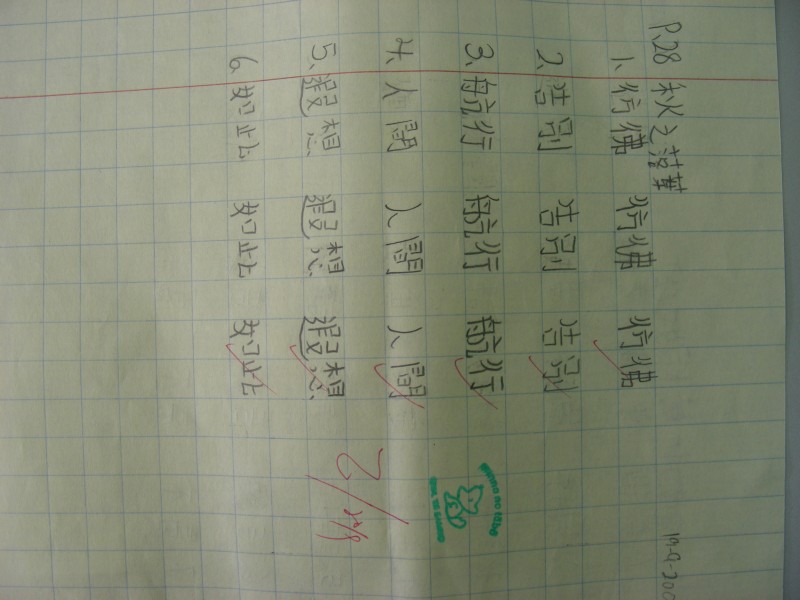 P.28 秋之落葉
19-9-200
1. 彷彿 彷彿 彷彿
2. 告別 告別 告別
3. 航行 航行 航行
4. 人間 人間 人間
5. 遐想 遐想 遐想
6. 如此 如此 如此